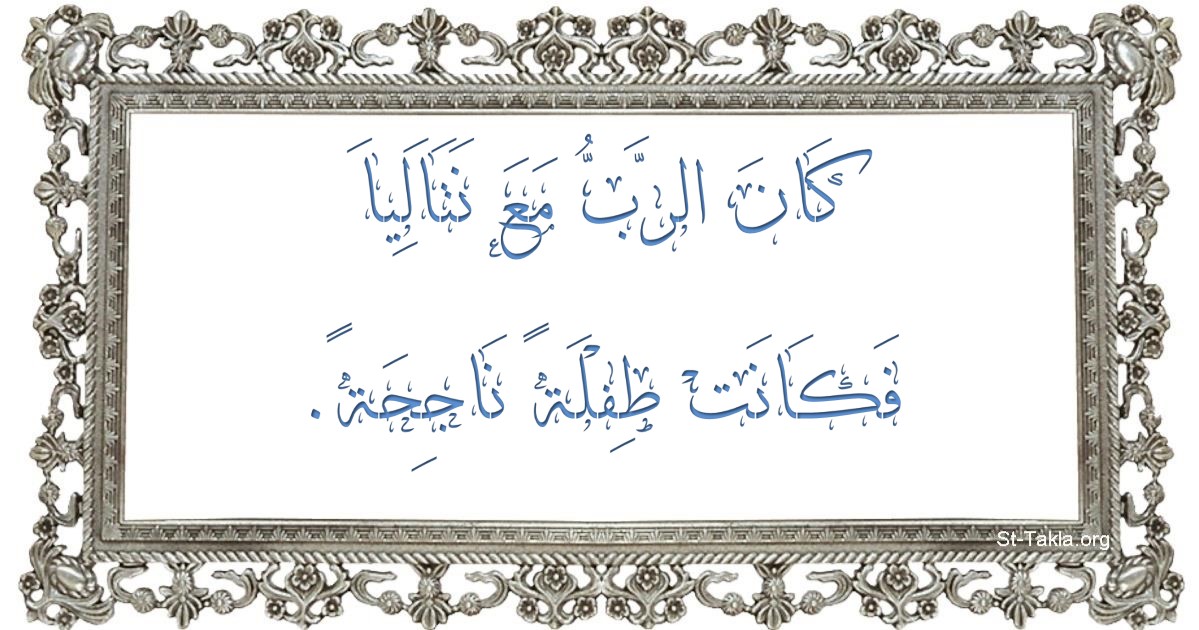 كَانَ الرَّبُّ مَعَ نَتَالِياَ
فَكَانَتْ طِفْلَةً نَاجِحَةً.
St-Takla.org